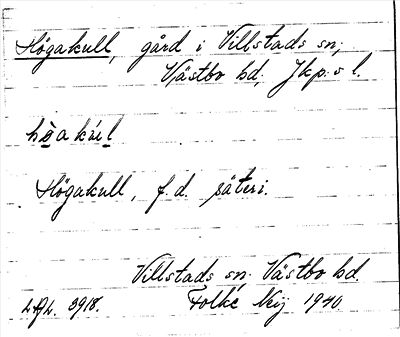 Högakull, gård i Villstads sn,
Västbo hd, Jkp:s l.
Högakull, f.d. säteri.
Villstads sn, Västbo hd.
3918. Folke 1940.